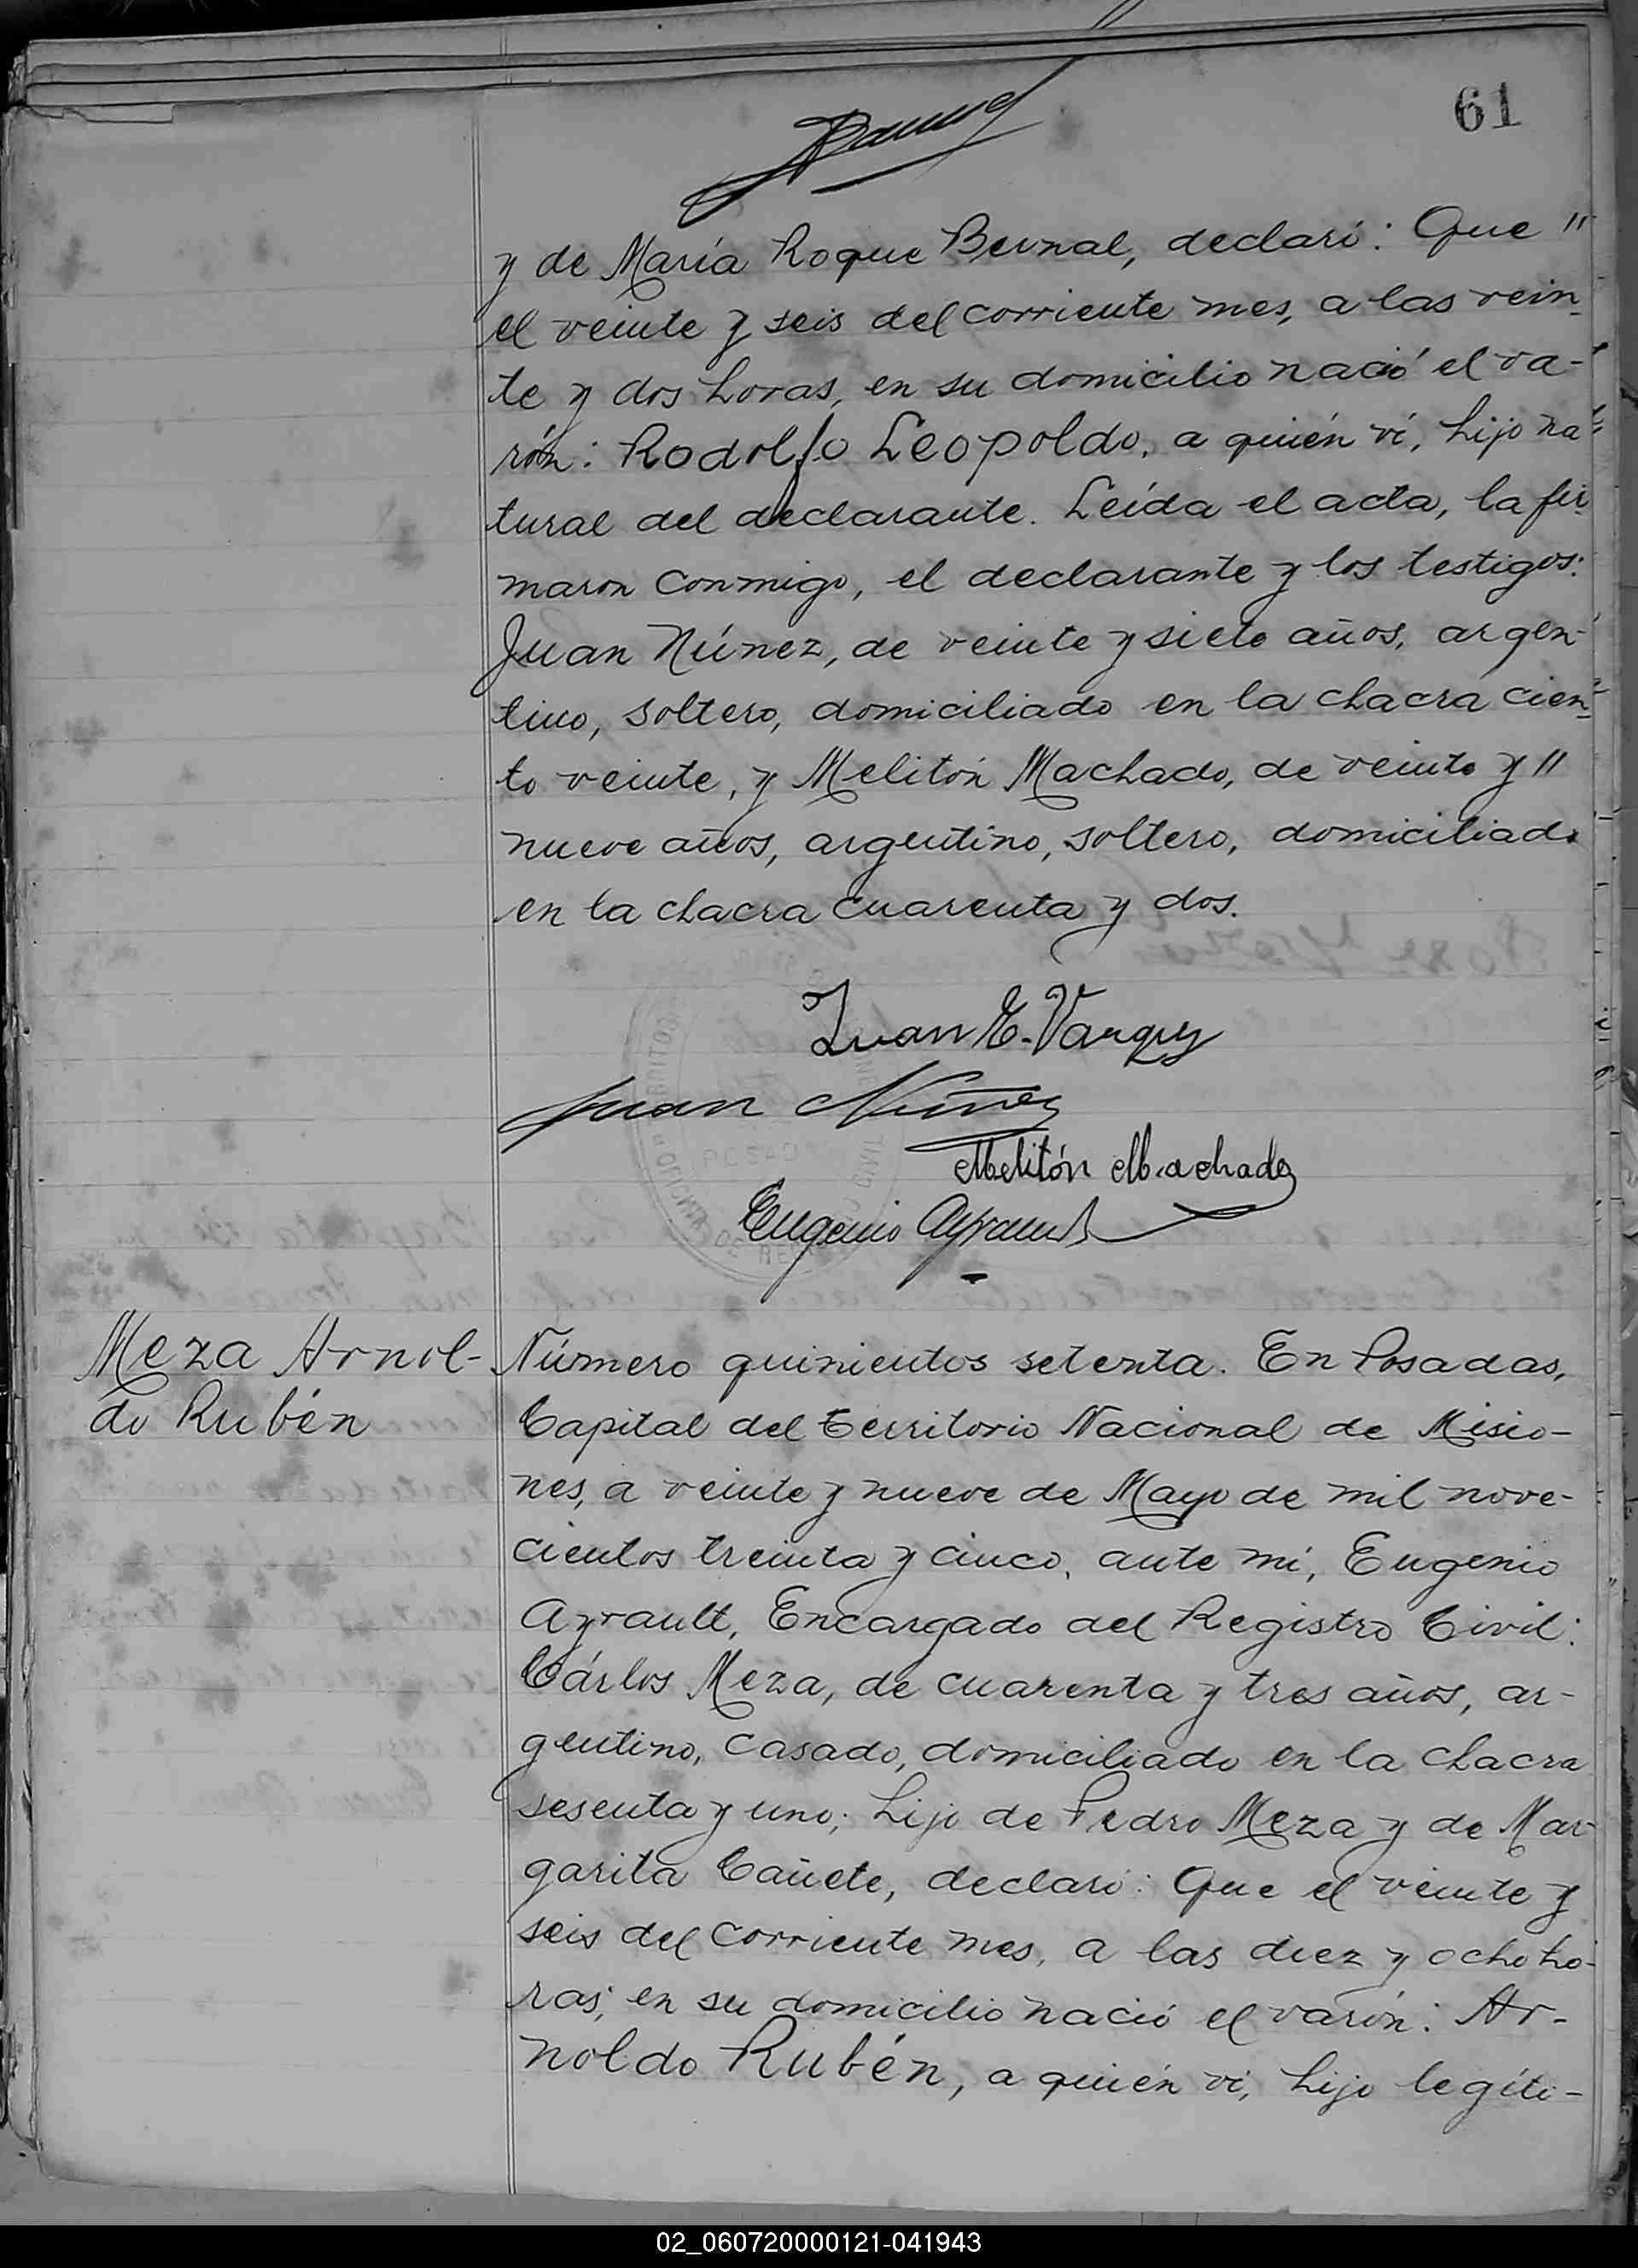 61
y de María Roque Bernal, declaró: Que "
el veinte y seis del corriente mes, a las vein-
te y dos horas, en su domicilio nació el va-
rón: Rodolfo Leopoldo, a quién ví, hijo na-
tural del declarante. Leída el acta, la fir-
maron conmigo, el declarante y los testigos:
Juan Núnez, de veinte y siete años, argen-
tino, soltero, domiciliado en la chacra cien-
to veinte, y Melitón Machado, de veinte y "
nueve años, argentino, soltero, domiciliado
en la chacra cuarenta y dos.
Juan E. Vargas
Juan Núñez
Melitón Machado
Eugenio Ayrault
Meza Arnol-
do Rubén
Número quinientos setenta. En Posadas,
Capital del Territorio Nacional de Misio-
nes, a veinte y nueve de Mayo de mil nove-
cientos treinta y cinco, ante mí, Eugenio
Ayrault, Encargado del Registro Civil:
Cárlos Meza, de cuarenta y tres años, ar-
gentino, casado, domiciliado en la chacra
sesenta y uno; hijo de Pedro Meza y de Mar-
garita Cañete, declaró: Que el veinte y
seis del corriente mes, a las diez y ocho ho-
ras, en su domicilio nació el varón: Ar-
noldo Rubén, a quién ví, hijo legíti-
02_060720000121-041943